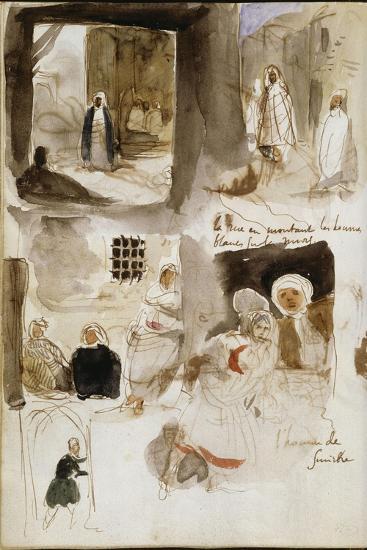 la rue en montant les hommes
blancs sur le mur
l'homme de